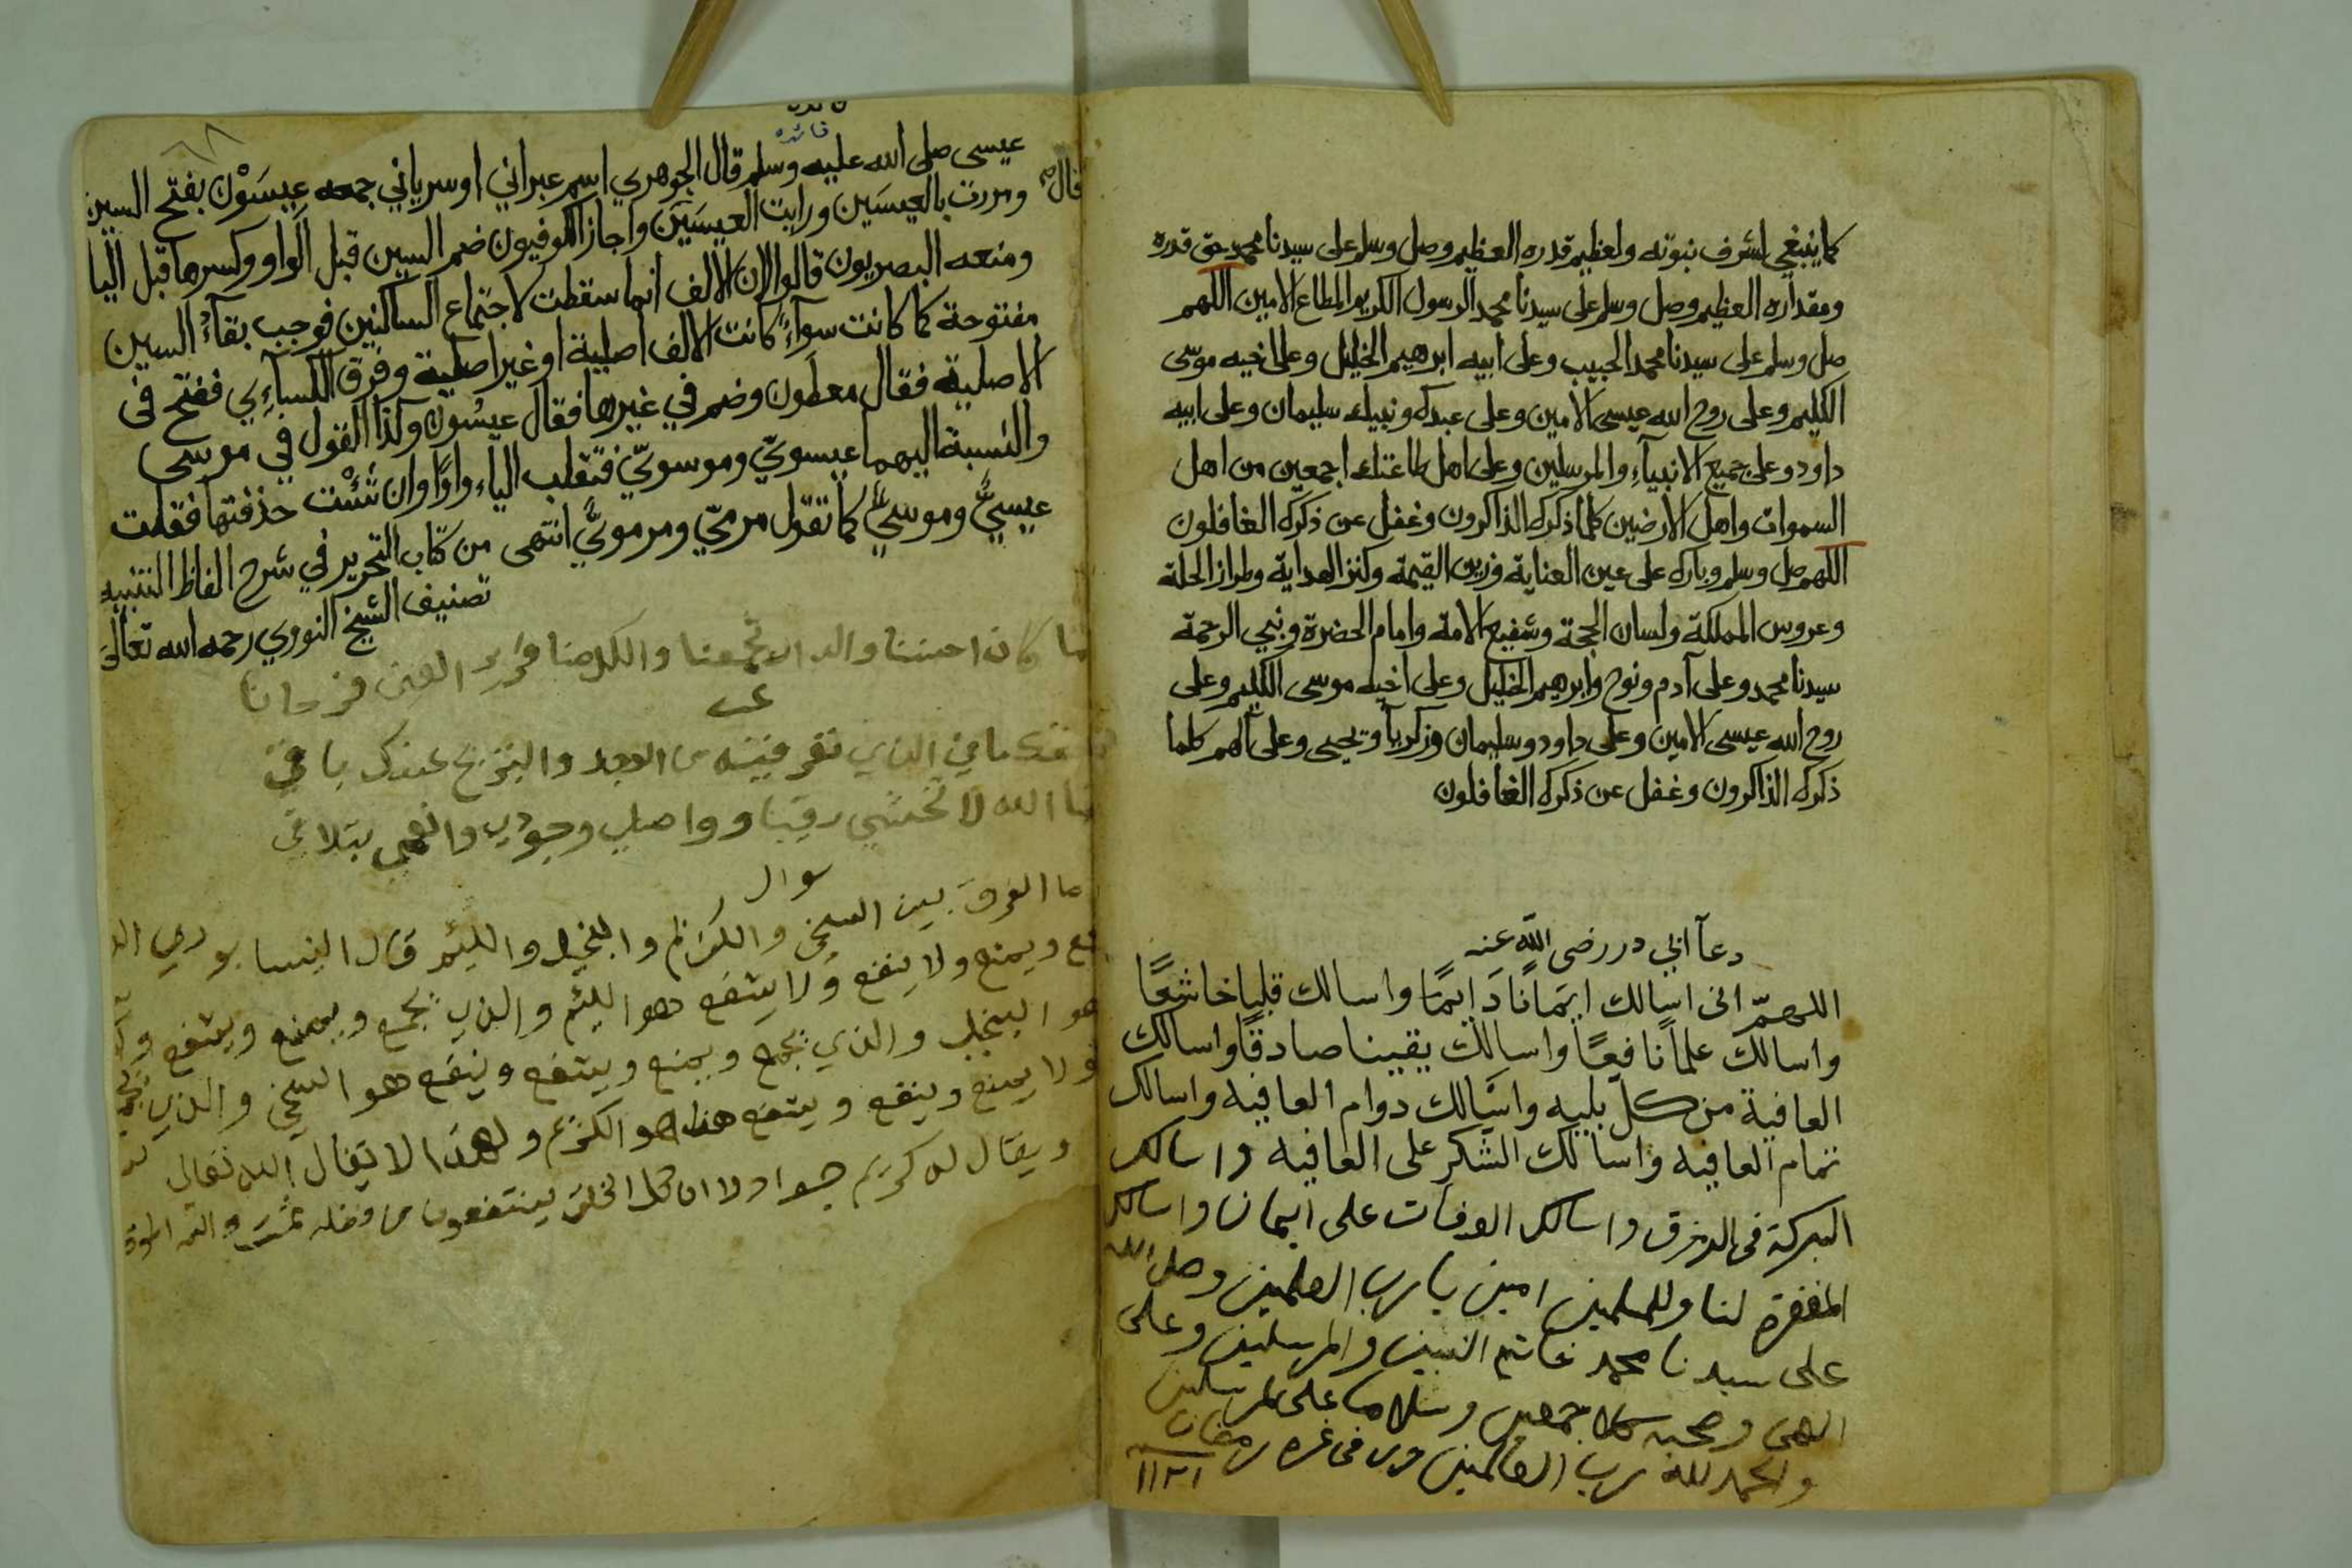 كما ينبغي لشرف نبوته ولعظيم قدره العظيم وصل وسلم على سيدنا محمد حق قدره
ومقداره العظيم وصل وسلم على سيدنا محمد الرسول الكريم المطاع الامين اللهم
صل وسلم على سيدنا محمد الحبيب وعلى ابيه ابرهيم الخليل وعلى اخيه موسى
الكليم وعلى روح الله عيسى الامين وعلى عبدك ونبيك سليمان وعلى ابيه
داود وعلى جميع الانبيآء والمرسلين وعلى اهل طاعتك اجمعين من اهل
السموات واهل الارضين كلما ذكرك الذاكرون وغفل عن ذكرك الغافلون
اللهم صل وسلم وبارك على عين العناية وزين القيمة وكنز الهداية وطراز الحلة
وعروس المملكة ولسان الحجة وشفيع الامة وامام الحضرة ونبي الرحمة
سيدنا محمد وعلى آدم ونوح وابرهيم الخليل وعلى اخيه موسى الكليم وعلى
روح الله عيسى الامين وعلى داود وسليمان وزكريا ويحيى وعلى آلهم كلما
ذكرك الذاكرون وغفل عن ذكرك الغافلون
دعآ ابي در رضى الله عنه
اللهمّ انى اسالك ايمانًا دَايمًا واسالك قلبا خاشعًا
واسالك علمًا نافعًا واسالك يقينا صادقًا واسالك
العافية من كل بليه واسالك دوام العافيه واسالك
تمام العافيه واسالك الشكر على العافيه واسالك
البركة فى الرزق واسالك الوفات على ايمان واسالك
المغفرة لنا وللمسلمين امين يا رب العلمين وصلى الله
على سيدنا محمد خاتم النبين والمرسلين وعلى
اله وصحبه اجمعين وسلام على المرسلين
والحمد لله رب العالمين فى غره رمضان
١١٢١
فائده
عيسى صلى الله عليه وسلم قال الجوهري اسم عبراني او سرياني جمعه عيسَوْن بفتح السين
قال ومررت بالعيسَين ورايت العيسَين واجاز الكوفيون ضم السين قبل الواو وكسرها قبل اليا
ومنعه البصريون قالوا لان الالف انما سقطت لاجتماع الساكنين فوجب بقآء السين
مفتوحة كما كانت سوآء كانت الالف اصلية او غير اصلية وفرق الكسآءي ففتح فى
الاصلية فقال معطون وضم في غيرها فقال عيسُون وكذا القول في موسى
والنسبة اليهما عيسويّ وموسويّ فتقلب الياء واوًا وان شئت حذفتها فقلت
عيسيّ وموسيّ كما تقول مرميّ ومرمويّ انتهى من كتاب التحرير في شرح الفاظ التنبيه
تصنيف الشيخ النووي رحمه الله تعالى
كان احسننا والدار تجمعنا
سوال
ما الفرق بين السخي والكريم والبخيل واللئيم قال النيسابوري
ويمنع ولا ينفع ولا ينتفع هو اللئيم والذي يجمع ويمنع وينتفع
هو البخيل والذي يجمع ويمنع وينتفع وينفع هو السخي والذي
ولا يمنع وينفع وينتفع هذا هو الكريم ولهذا لا يقال الله تعالى
ويقال له كريم جواد لان كل الخلق ينتفعون من فضله